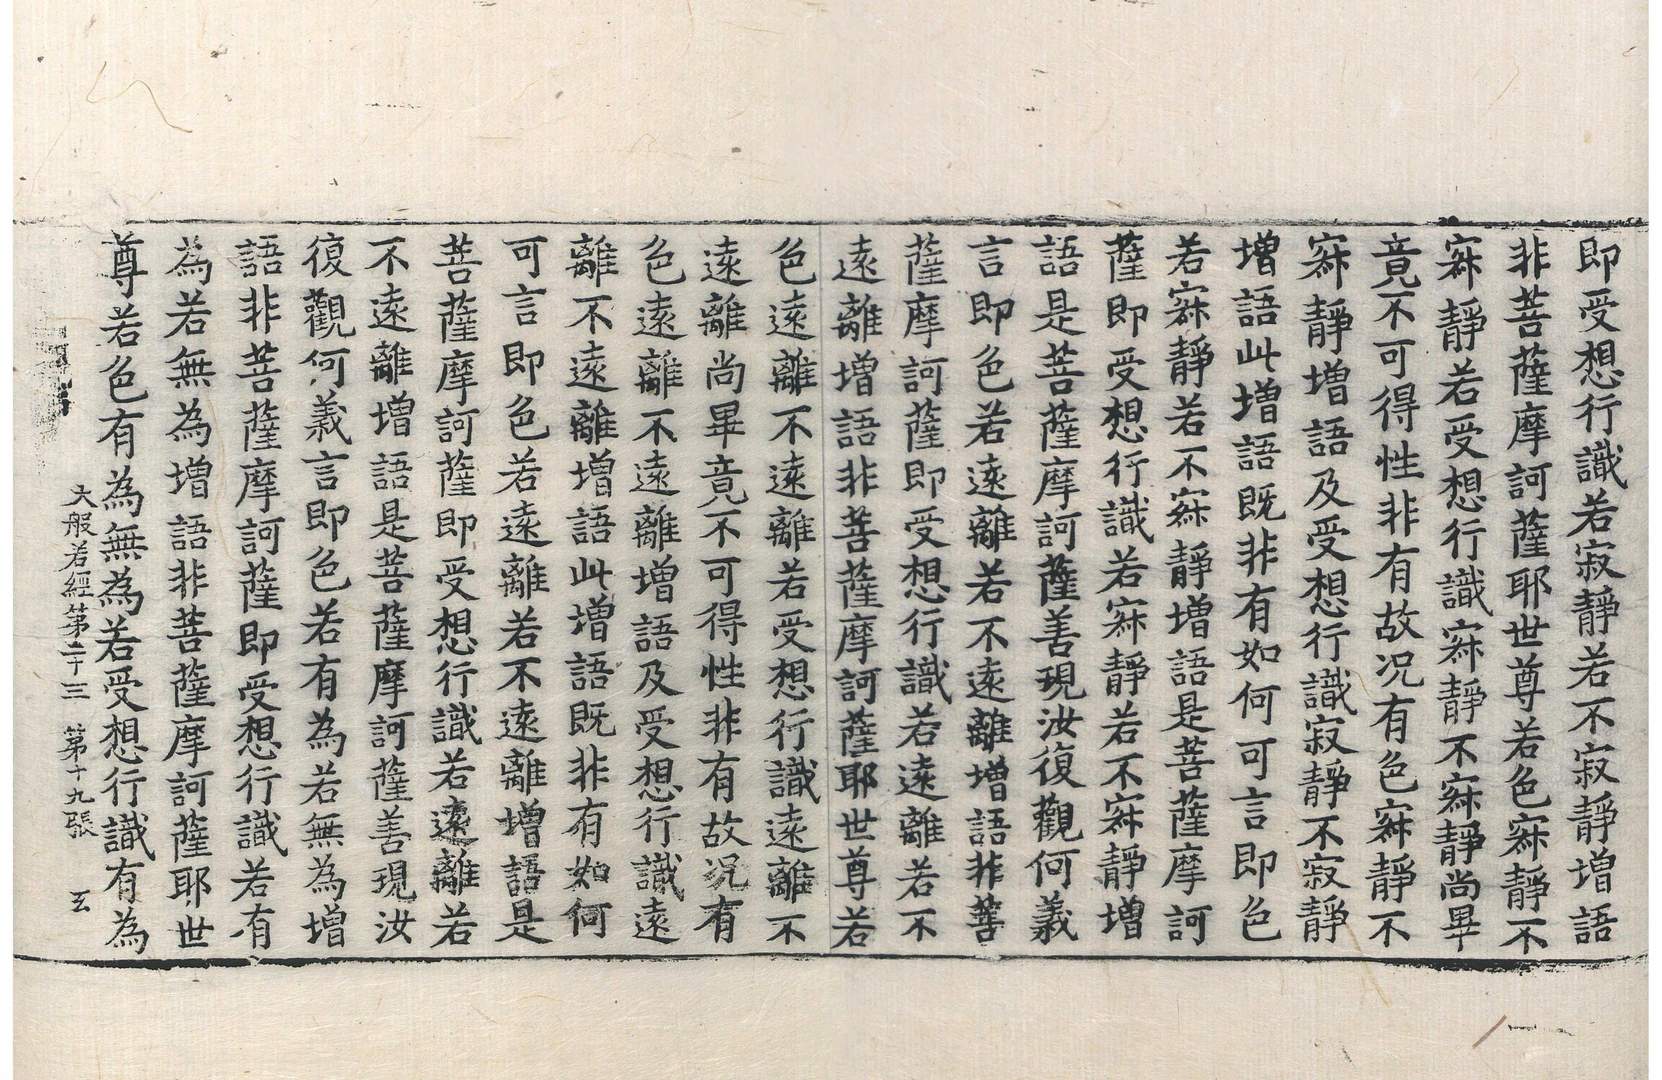 即受想行識若寂靜若不寂靜增語
非菩薩摩訶薩耶世尊若色寂靜不
寂靜若受想行識寂靜不寂靜尚畢
竟不可得性非有故况有色寂靜不
寂靜增語及受想行識寂靜不寂靜
增語此增語既非有如何可言即色
若寂靜若不寂靜增語是菩薩摩訶
薩即受想行識若寂靜若不寂靜增
語是菩薩摩訶薩善現汝復觀何義
言即色若遠離若不遠離增語非菩
薩摩訶薩即受想行識若遠離若不
遠離增語非菩薩摩訶薩耶世尊若
色遠離不遠離若受想行識遠離不
遠離尚畢竟不可得性非有故况有
色遠離不遠離增語及受想行識遠
離不遠離增語此增語既非有如何
可言即色若遠離若不遠離增語是
菩薩摩訶薩即受想行識若遠離若
不遠離增語是菩薩摩訶薩善現汝
復觀何義言即色若有為若無為增
語非菩薩摩訶薩即受想行識若有
為若無為增語非菩薩摩訶薩耶世
尊若色有為無為若受想行識有為
大般若經第二十三 第十九張 玄